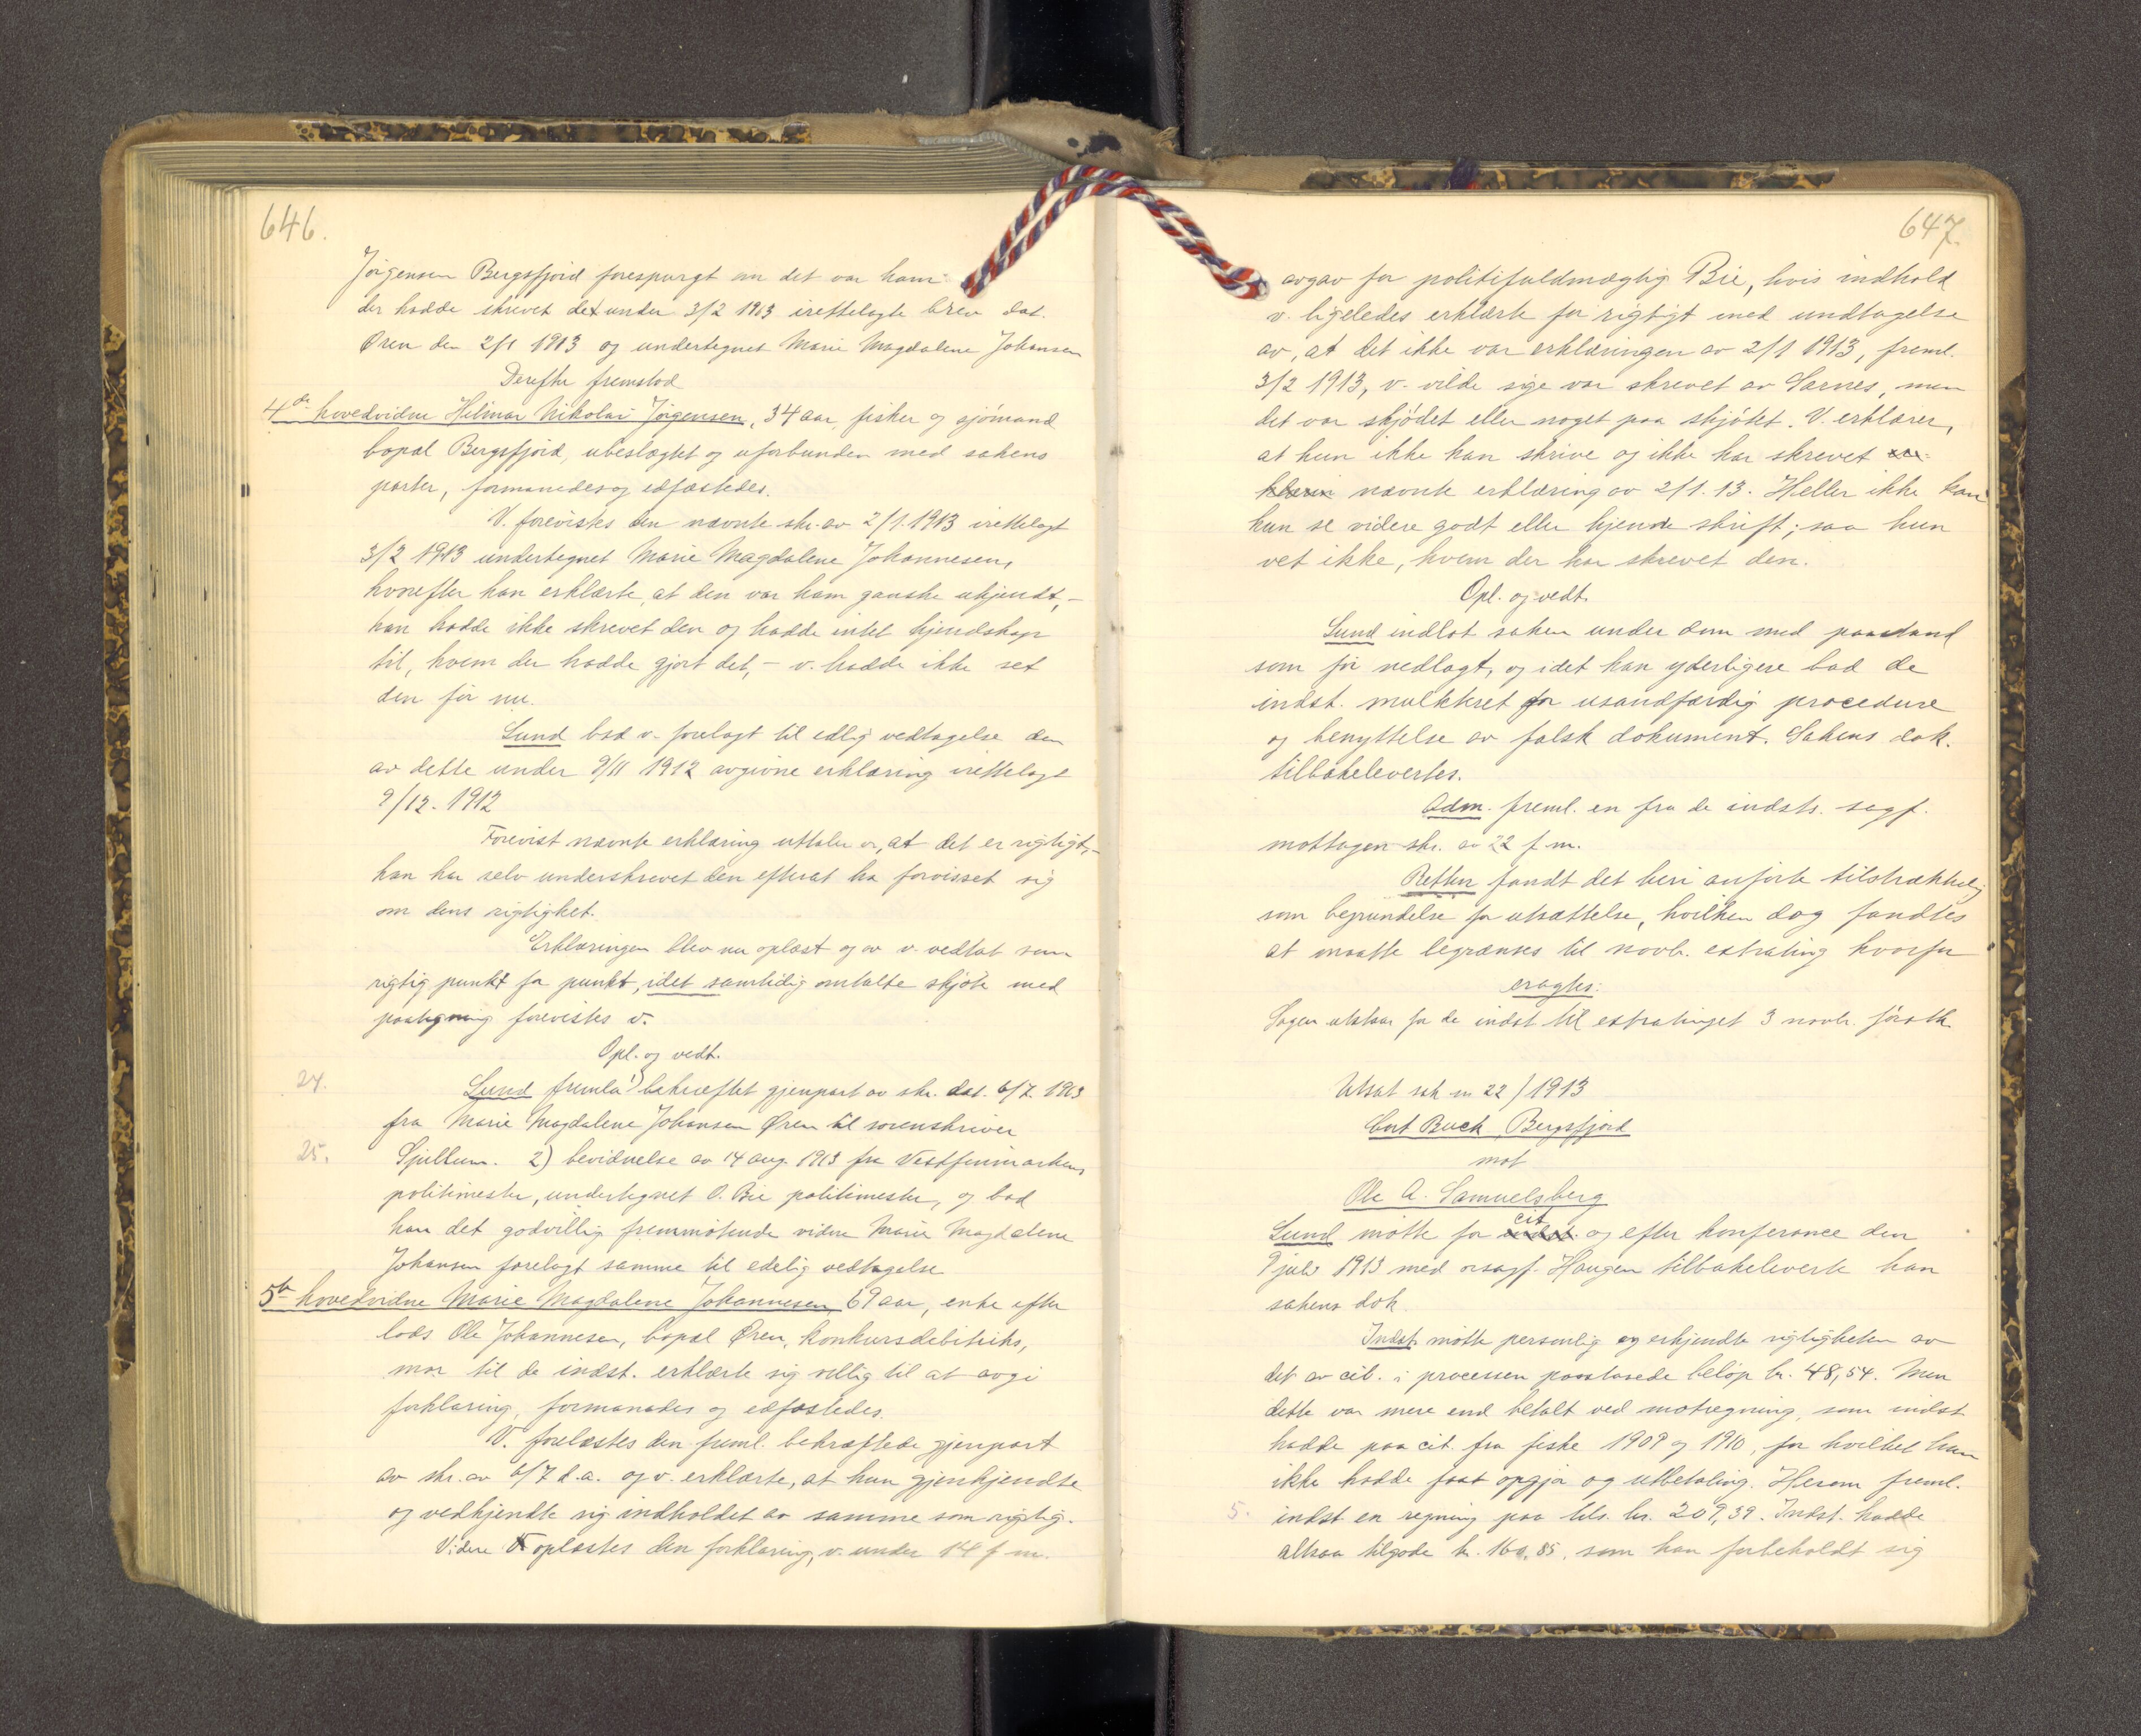 646.
Jörgensen Bergsfjord forespurgt om det var ham
der hadde skrevet det under 3/2 1913 irettelagte brev dat.
Øren den 2/1 1913 og undertegnet Marie Magdalene Johansen
Derefter fremstod
4de hovedvidne Hilmar Nikolai Jörgensen, 34 aar, fisker og sjömand
bopæl Bergsfjord, ubeslægtet og uforbunden med sakens
parter, formanedes og edfæstedes.
V. forevistes den nævnte skr. av 2/1.1913 irettelagt
3/2 1913 undertegnet Marie Magdalene Johannesen,
hvorefter han erklærte, at den var ham ganske ukjendt, –
han hadde ikke skrevet den og hadde intet kjendskap
til, hvem der hadde gjort det, – v. hadde ikke set
den för nu.
Lund bad v. forelagt til edlig vedtagelse den
av dette under 9/11 1912 avgivne erklæring irettelagt
9/12. 1912
Forevist nævnte erklæring uttaler v., at det er rigtigt, –
han har selv underskrevet den efterat ha forvisset sig
om dens rigtighet.
Erklæringen blev nu oplæst og av v. vedtat som
rigtig punkt for punkt, idet samtidig omtalte skjöte med
paategning forevistes v.
Opl. og vedt.
24. Lund fremla 1) bekræftet gjenpart av skr. dat. 6/7. 1913
fra Marie Magdalene Johansen Øren til sorenskriver
25. Gjullum. 2) bevidnelse av 14 aug. 1913 fra Vestfinmarkens
politimester, undertegnet O. Bie politimester, og bad
han det godvillig fremmötende vidne Marie Magdalene
Johansen forelagt samme til edelig vedtagelse
5te hovedvidne Marie Magdalene Johannesen, 69 aar, enke efter
lods Ole Johannesen, bopæl Øren, konkursdebitriks,
mor til de indst. erklærte sig villig til at avgi
forklaring, formanedes og edfæstedes.
V. forelæstes den freml. bekræftede gjenpart
av skr. av 6/7 d.a. og v. erklærte, at hun gjenkjendte
og vedkjendte sig indholdet av samme som rigtig.
Videre oplæstes den forklaring, v. under 14 f. m.
647.
avgav for politifuldmægtig Bie, hvis indhold
v. ligeledes erklærte for rigtigt med undtagelse
av, at det ikke var erklæringen av 2/1 1913, freml.
3/2 1913, v. vilde sige var skrevet av Sarnes, men
det var skjödet eller noget paa skjötet. V. erklærer,
at hun ikke kan skrive og ikke har skrevet
nævnte erklæring av 2/1.13. Heller ikke kan
hun se videre godt eller kjende skrift; saa hun
vet ikke, hvem der har skrevet den.
Opl. og vedt.
Lund indlot saken under dom med paastand
som för nedlagt, og idet han yderligere bad de
indst. mulkteret for usandfærdig procedure
og benyttelse av falsk dokument. Sakens dok.
tilbakelevertes.
Adm. freml. en fra de indsts. sagf.
mottagen skr. av 22 f. m.
Retten fandt det heri anförte tilstrækkelig
som begrundelse for utsættelse, hvilken dog fandtes
at maatte begrænses til novbr. extrating hvorfor
eragtes:
Sagen utstaar for de indst til extratinget 3 novbr. först k.
Utsat sak nr 22/1913
Cort Buck, Bergsfjord
mot
Ole A. Samuelsberg
Lund mötte for cit. og efter konferance den
9 juli 1913 med orsagf. Haugen tilbakeleverte han
sakens dok.
Indst. mötte personlig og erkjendte rigtigheten av
det av cit. i processen paastaaede belöp kr. 48,54. Men
dette var mere end betalt ved motregning, som indst
hadde paa cit. fra fiske 1909 og 1910, for hvilket han
ikke hadde faat opgjör og utbetaling. Herom freml.
5. indst en regning paa tils. kr. 209,39. Indst. hadde
altsaa tilgode kr. 160,85, som han forbeholdt sig